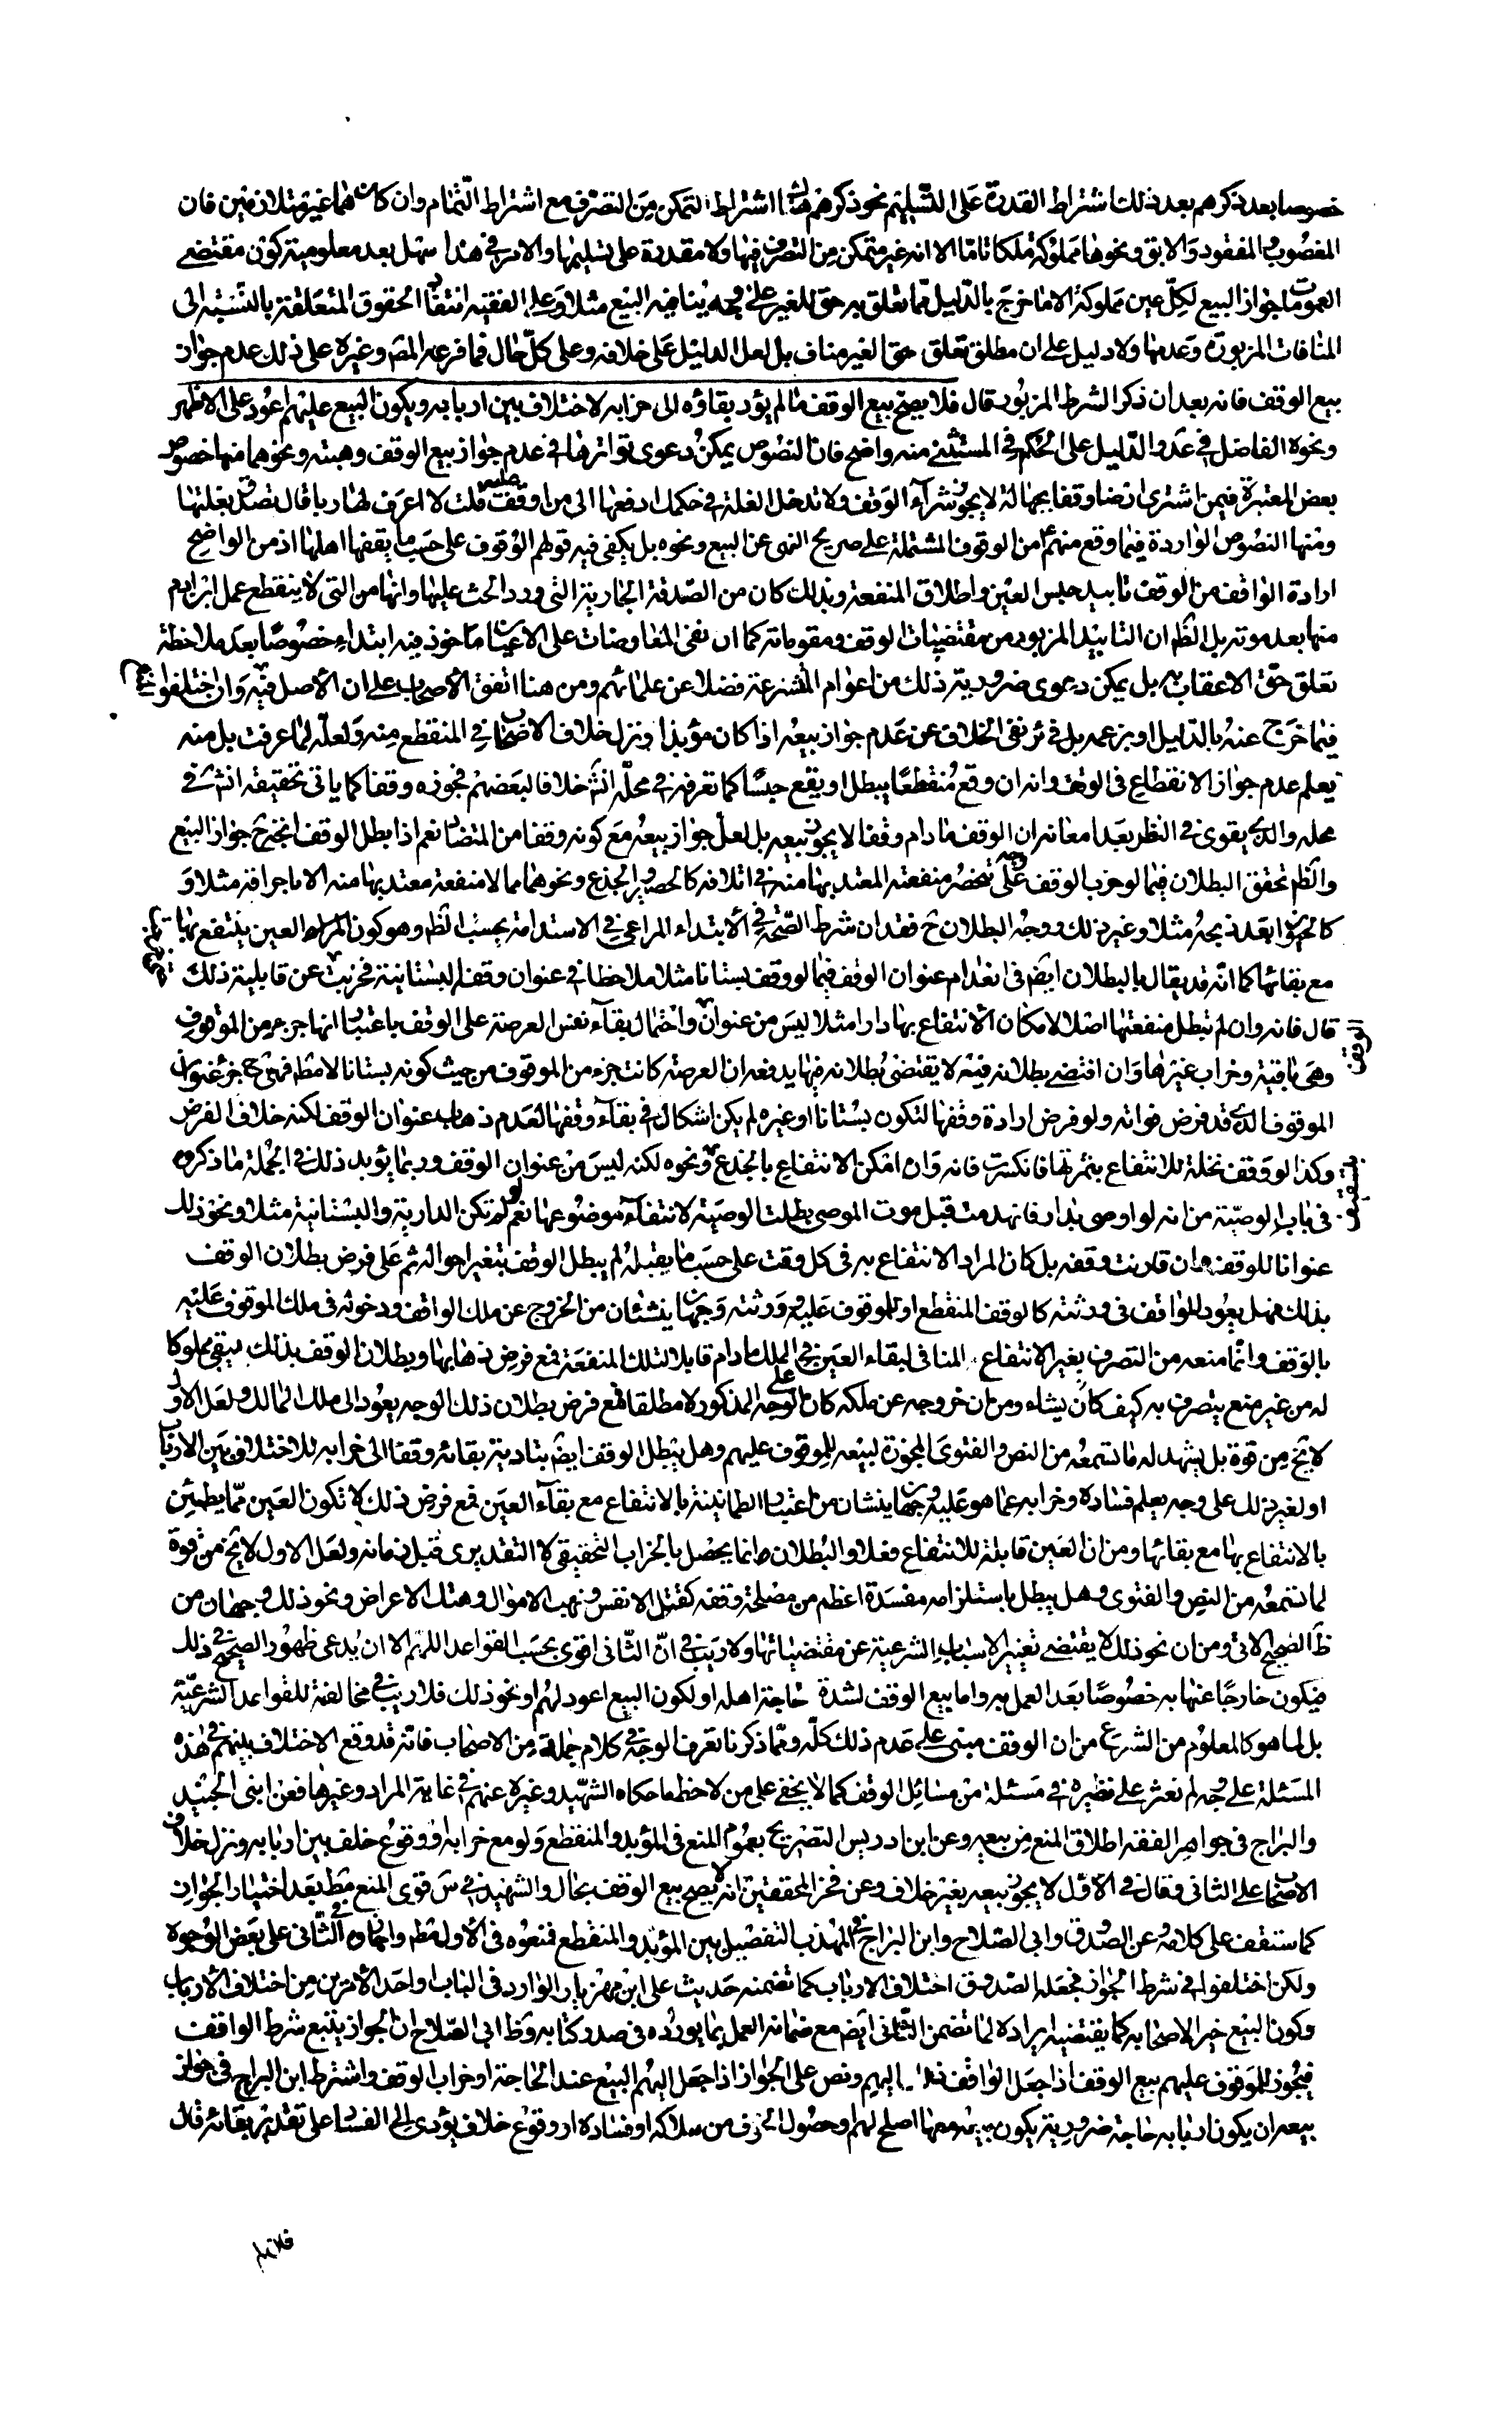 خصوصا بعد ذكرهم بعد ذلك اشتراط القدرة على التسليم نحو ذكرهم هناك اشتراط التمكن من التصرف مع اشتراط التمام وان كان هما غير متلازمين فان
المغصوب المفقود والابق ونحوها مملوكة ملكا تاما الا انه غير متمكن من التصرف فيها ولا مقدرة على تسليمها والامر في هذا سهل بعد معلومية كون مقتضى
العمومات جواز البيع لكل عين مملوكة الا ما خرج بالدليل مما تعلق به حق للغير على وجه ينافيه البيع مثلا وعلى الفقيه انتقاد الحقوق المتعلقة بالنسبة الى
المنافات المزبورة وعدمها ولا دليل على ان مطلق تعلق حق الغير مناف بل لعل الدليل على خلافه وعلى كل حال فما فرعه المصم وغيره على ذلك عدم جواز
بيع الوقف فانه بعد ان ذكر الشرط المزبور قال فلا يصح بيع الوقف ما لم يؤد بقاؤه الى خرابه لاختلاف بين اربابه ويكون البيع عليهم اعود على الاظهر
ونحوه الفاضل في عد والدليل على الحكم في المستثنى منه واضح فان النصوص يمكن دعوى تواترها في عدم جواز بيع الوقف وهبته ونحوهما منها خصوص
بعض المعتبرة فيمن اشترى ارضا وقفا بجهالة لا يجوز شراء الوقف ولا تدخل الغلة في حكمك ادفعها الى من اوقفت عليه قلت لا اعرف لها ربا قال تصدق بغلتها
ومنها النصوص الواردة فيما وقع منهم ع من الوقوف المشتملة على صريح النهى عن البيع ونحوه بل يكفى فيه قولهم الوقوف على حسب ما يقفها اهلها اذ من الواضح
ارادة الواقف من الوقف تابيد حبس العين واطلاق المنفعة وبذلك كان من الصدقة الجارية التى ورد الحث عليها وانها من التى لا ينقطع عمل ابن ادم
منها بعد موته بل الظم ان التابيد المزبور من مقتضيات الوقف ومقوماته كما ان نفى المعاوضات على الاعيان ماخوذ فيه ابتداء خصوصا بعد ملاحظة
تعلق حق الاعقاب به بل يمكن دعوى ضرورية ذلك من اعوام المتشرعة فضلا عن علمائهم ومن هنا اتفق الاصحاب على ان الاصل فيه وان اختلفوا
فيما خرج عنه بالدليل او بزعمه بل في ئر نفى الخلاف عن عدم جواز بيعه اذا كان مؤبدا ونزل خلاف الاصحاب في المنقطع منه ولعله لما عرفت بل منه
يعلم عدم جواز الانقطاع في الوقف وانه ان وقع منقطعا يبطل او يقع حبسا كما تعرفه في محله انش خلافا لبعضهم فجوزه وقفا كما ياتى تحقيقه انش في
محله والذى يقوى في النظر بعد امعانه ان الوقف ما دام وقفا لا يجوز بيعه بل لعل جواز بيعه مع كونه وقفا من المتضاد نعم اذا بطل الوقف اتجه ح جواز البيع
والظم تحقق البطلان فيما لو خرب الوقف على وجه تنحصر منفعته المعتد بها منه في اتلافه كالحصير والجذع ونحوهما مما لا منفعة معتد بها منه الا باحراقه مثلا و
كالحيوان بعد ذبحه مثلا وغير ذلك ووجه البطلان ح فقدان شرط الصحة في الابتداء المراعى في الاستدامة بحسب الظم وهو كون المراد العين ينتفع بها
مع بقائها كما انه قد يقال بالبطلان ايضم في انعدام عنوان الوقف فيما لو وقف بستانا مثلا ملاحظا في عنوان وقفه البستانية فخربت عن قابلية ذلك
قال فانه وان لم تبطل منفعتها اصلا لامكان الانتفاع بها دارا مثلا ليس من عنوان الوقف واحتمال بقاء نفس العرصة على الوقف باعتبار انها جزء من الموقوف
وهى باقية وخراب غيرها وان اقتضى بطلانه فيه لا يقتضى بطلانه فيها يدفعه ان العرصة كانت جزء من الموقوف من حيث كونه بستانا لا مطم فهى ح جزء عنوان
الموقوف الذى قد فرض فواته ولو فرض ارادة وقفها لتكون بستانا او غيره لم يكن اشكال في بقاء وقفها لعدم ذهاب عنوان الوقف لكنه خلاف الفرض
وكذا لو وقف نخلة للانتفاع بثمرتها فانكسرت فانه وان امكن الانتفاع بالجذع بتسقيف ونحوه لكنه ليس من عنوان الوقف وربما يؤيد ذلك في الجملة ما ذكروه
في باب الوصية من انه لو اوصى بدار فانهدمت قبل موت الموصى بطلت الوصية لانتفاء موضوعها نعم لو لم تكن الدارية والبستانية مثلا ونحو ذلك
عنوانا للوقف وان قارنت وقفه بل كان المراد الانتفاع به في كل وقت على حسب ما يقبله لم يبطل الوقف بتغير احواله ثم على فرض بطلان الوقف
بذلك فهل يعود للواقف في ورثته كالوقف المنقطع او للموقوف عليه وورثته وجهان ينشئان من الخروج عن ملك الواقف ودخوله في ملك الموقوف عليه
بالوقف وانما منعه من التصرف بغير الانتفاع المنافى ابقاء العين في الملك ما دام قابلا لتلك المنفعة فمع فرض ذهابها وبطلان الوقف بذلك يبقى مملوكا
له من غير منع يتصرف به كيف كان يشاء ومن ان خروجه عن ملكه كان على الوجه المذكور لا مطلقا فمع فرض بطلان ذلك الوجه يعود الى ملك المالك ولعل الاول
لا يخ من قوة بل يشهد له ما تسمعه من النص والفتوى المجوزة لبيعه للموقوف عليهم وهل يبطل الوقف ايضم بتادية بقائه وقفا الى خرابه للاختلاف بين الارباب
او لغير ذلك على وجه يعلم فساده وخرابه عما هو عليه وجهان ينشان من اعتبار الطمانينة بالانتفاع مع بقاء العين فمع فرض ذلك لا تكون العين مما يطمئن
بالانتفاع بها مع بقائها ومن ان العين قابلة للانتفاع فعلا والبطلان انما يحصل بالخراب التحقيقى لا التقديرى قبل زمانه ولعل الاول لا يخ من قوة
لما تسمعه من النص والفتوى وهل يبطل باستلزامه مفسدة اعظم من مصلحة وقفه كقتل الانفس ونهب الاموال وهتك الاعراض ونحو ذلك وجهان من
ظاهر الصحيح الاتى ومن ان نحو ذلك لا يقتضى تغيير الاسباب الشرعية عن مقتضياتها ولا ريب في ان الثانى اقوى بحسب القواعد اللهم الا ان يدعى ظهور الصحيح في ذلك
فيكون خارجا عنها به خصوصا بعد العمل به واما بيع الوقف لشدة حاجة اهله او لكون البيع اعود لهم او نحو ذلك فلا ريب في مخالفته للقواعد الشرعية
بل لما هو كالمعلوم من الشرع من ان الوقف مبنى على عدم ذلك كله ومما ذكرنا تعرف الوجه في كلام جملة من الاصحاب فانه قد وقع الاختلاف بينهم في هذه
المسئلة على وجه لم نعثر على نظيره في مسئلة من مسائل الوقف كما لا يخفى على من لاحظ ما حكاه الشهيد وغيره عنهم في غاية المراد وغيرها فعن ابنى الجنيد
والبراج في جواهر الفقه اطلاق المنع من بيعه وعن ابن ادريس التصريح بعموم المنع في المؤبد والمنقطع ولو مع خرابه او وقوع خلف بين اربابه ونزل خلاف
الاصحاب على الثانى وقال في الاول لا يجوز بيعه بغير خلاف وعن فخر المحققين انه لا يصح بيع الوقف بحال والشهيد في س قوى المنع مطم بعد اختيار الجواز
كما ستقف على كلامه وعن الصدوق وابى الصلاح وابن البراج في المهذب التفصيل بين المؤبد والمنقطع فمنعوه في الاول مطم واجازوه في الثانى على بعض الوجوه
ولكن اختلفوا في شرط الجواز فجعله الصدوق اختلاف الارباب كما تضمنه حديث على ابن مهزيار الوارد في الباب او احد الامرين من اختلاف الارباب
وكون البيع خيرا لاصحابه كما يقتضيه ايراده لما تضمن الثانى ايضم مع ضمانه العمل بما يورده في صدر كتابه وظ ابى الصلاح ان الجواز يتبع شرط الواقف
فيجوز للموقوف عليهم بيع الوقف اذا جعل الواقف ذلك اليهم ونص على الجواز اذا جعل اليهم البيع عند الحاجة او خراب الوقف واشترط ابن البراج في جواز
بيعه ان يكون اربابه حاجة ضرورية يكون بيعه معها اصلح لهم او حصول الخوف من هلاكه او فساده او وقوع خلاف يؤدى الى الفساد على تقدير بقائه قال